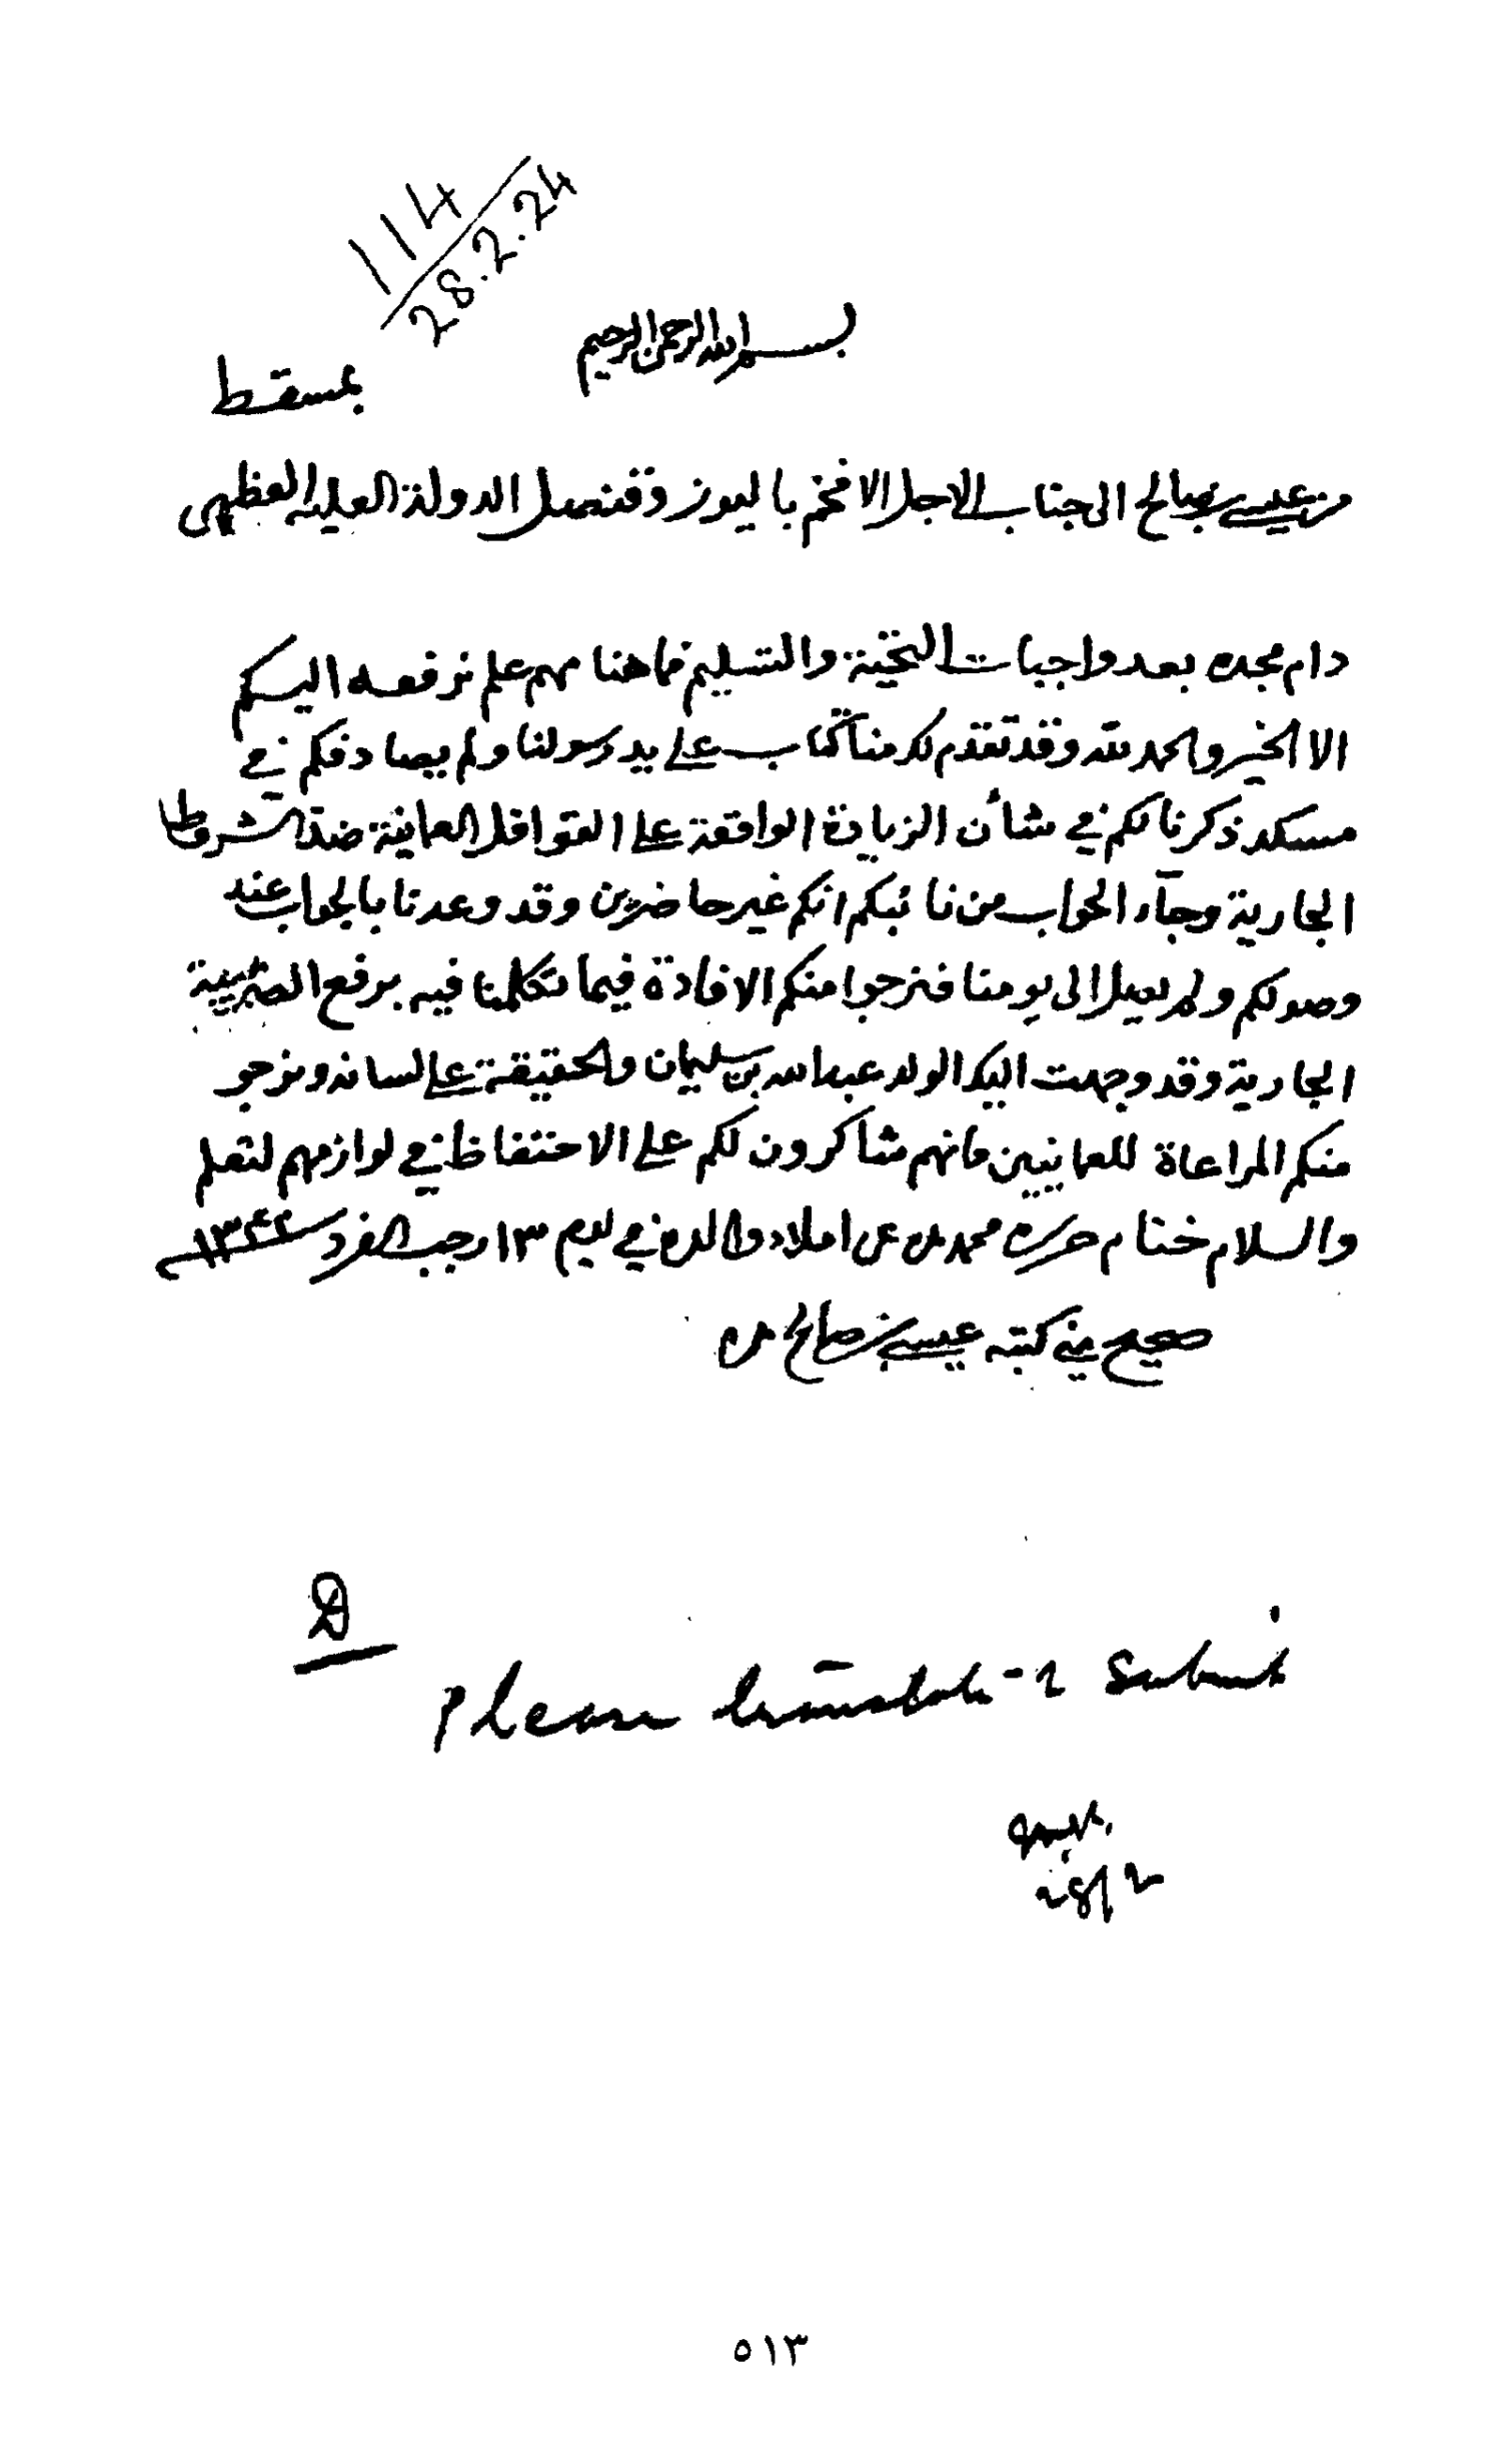 114
28.2.24
بسم الله الرحمن الرحيم
بمسقط
من عيسى بن صالح الى جناب الاجل الافخم باليوز وقنصل الدولة العلية العظمى
دام مجده بعد واجبات التحية والتسليم فما هنا مهم علم نرفعه اليكم
الا الخير والحمد لله وقد تقدم لكم منا كتاب على يد رسولنا ولم يصادفكم في
مسكد ذكرنا لكم في شأن الزيادة الواقعة على القوافل العمانية ضد الشروط
الجارية وجآء الجواب من نائبكم انكم غير حاضرين وقد وعدنا بالجواب عند
وصولكم ولم يصل الى يومنا فنرجوا منكم الافادة فيما تكلمنا فيه برفع الضريبية
الجارية وقد وجهت اليك الولد عبدالله بن سليمان والحقيقة على لسانه ونرجو
منكم المراعاة للعمانيين فانهم شاكرون لكم على الاحتفاظ في لوازمهم لتعلم
والسلام ختام حرره محمد عن املاء والده في ليوم ١٣ رجب الفرد سنة ١٣٤٢
صحيح مني كتبه عيسى بن صالح
Please translate & submit
28/2
٥١٣